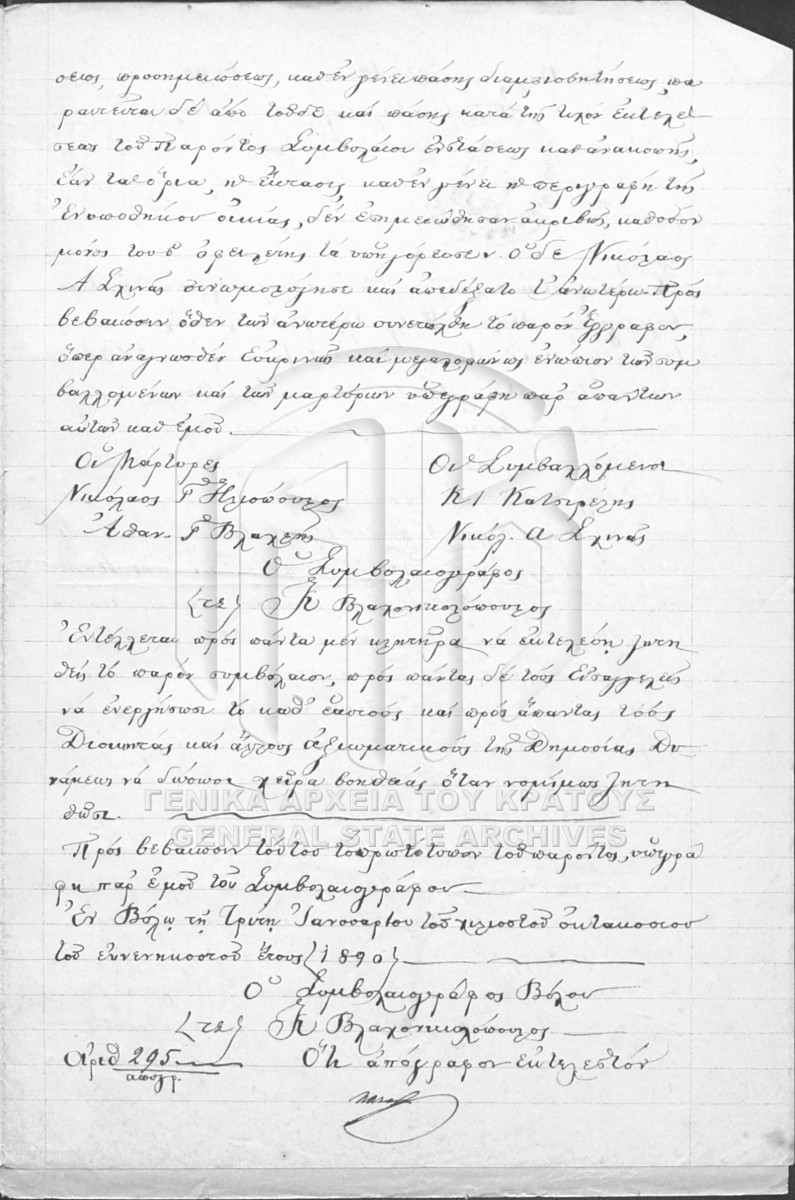 σεως, προσημειώσεως, καθ' ἐν γένει πάσης διαμφισβητήσεως, πα
ραιτεῖται δέ ἀπό τοῦδε καί πάσης κατά τῆς τυχόν ἐκτελέ
σεως τοῦ Παρόντος Συμβολαίου ἐνστάσεως καί ἀνακοπῆς,
ἐάν τα ὅρια, ἡ ἔκτασις καί ἐν γένει ἡ περιγραφή τῆς
Ἐνυποθήκου οἰκίας, δέν ἐσημειώθησαν ἀκριβῶς, καθόσον
μόνος του ὁ ὀφειλέτης τά ὑπηγόρευσεν. Ὁ δε Νικόλαος
Α Σχινᾶς συνωμολόγησε καί ἀπεδέξατο τ' ἀνωτέρω. Πρός
βεβαίωσιν ὅθεν τῶν ἀνωτέρω συνετάχθη τό παρόν Ἔγγραφον,
ὅπερ ἀναγνωσθέν Εὐκρινῶς καί μεγαλοφώνως ἐνώπιον τῶν συμ
βαλλομένων καί τῶν μαρτύρων ὑπεγράφη παρ' ἁπάντων
αὐτῶν καί ἐμοῦ.
Οἱ Μάρτυρες Οἱ Συμβαλλόμενοι
Νικόλαος Γ Ἡλιόπουλος Κ Ι Κατσιρέλης
Ἀθαν. Γ Βλαχλῆς Νικόλ. Α Σχινᾶς
Ὁ Συμβολαιογράφος
(τσ) Κ Βλαχονικολόπουλος
Ἐντέλλεται πρός πάντα μέν κλητῆρα νά ἐκτελέσῃ ζητη
θείς τό παρόν συμβόλαιον, πρός πάντας δέ τούς Εἰσαγγελεῖς
νά ἐνεργήσωσι το καθ' ἑαυτούς καί πρός ἅπαντας τούς
Διοικητάς καί ἄλλους ἀξιωματικούς τῆς Δημοσίας Δυ
νάμεως νά δώσωσι χεῖρα βοηθείας ὅταν νομίμως ζητη
θῶσι.
ΓΕΝΙΚΑ ΑΡΧΕΙΑ ΤΟΥ ΚΡΑΤΟΥΣ
GENERAL STATE ARCHIVES
Πρός βεβαίωσιν τούτου τό πρωτότυπον τοῦ παρόντος, ὑπεγρά
φη παρ' ἐμοῦ τοῦ Συμβολαιογράφου
Ἐν Βόλῳ τῇ Τρίτῃ Ἰανουαρίου τοῦ χιλιοστοῦ ὀκτακοσιοσ
τοῦ ἐννενηκοστοῦ ἔτους (1890)
Ὁ Συμβολαιογράφος Βόλου
(τσ) Κ Βλαχονικολόπουλος
Ἀριθ 295 Ὅτι ἀπόγραφον ἐκτελεστόν
ἀπογρ.